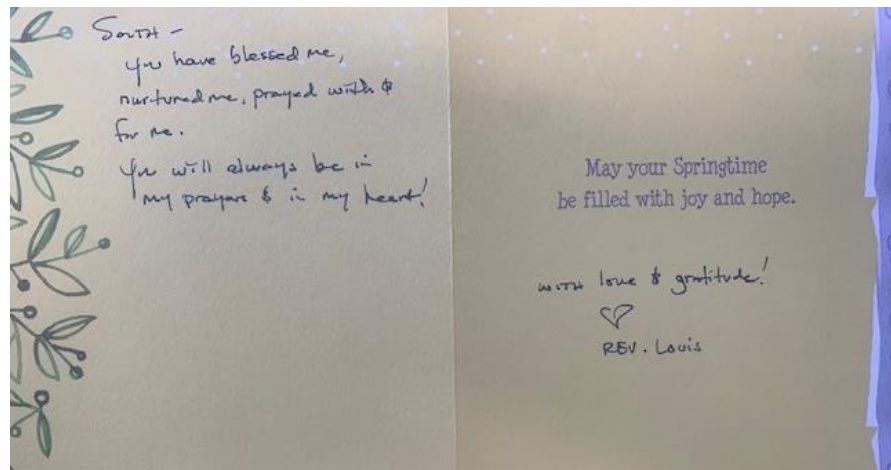 South -
you have blessed me,
nurtured me, prayed with &
for me.
You will always be in
my prayers & in my heart!
May your Springtime
be filled with joy and hope.
with love & gratitude!
REV. Louis